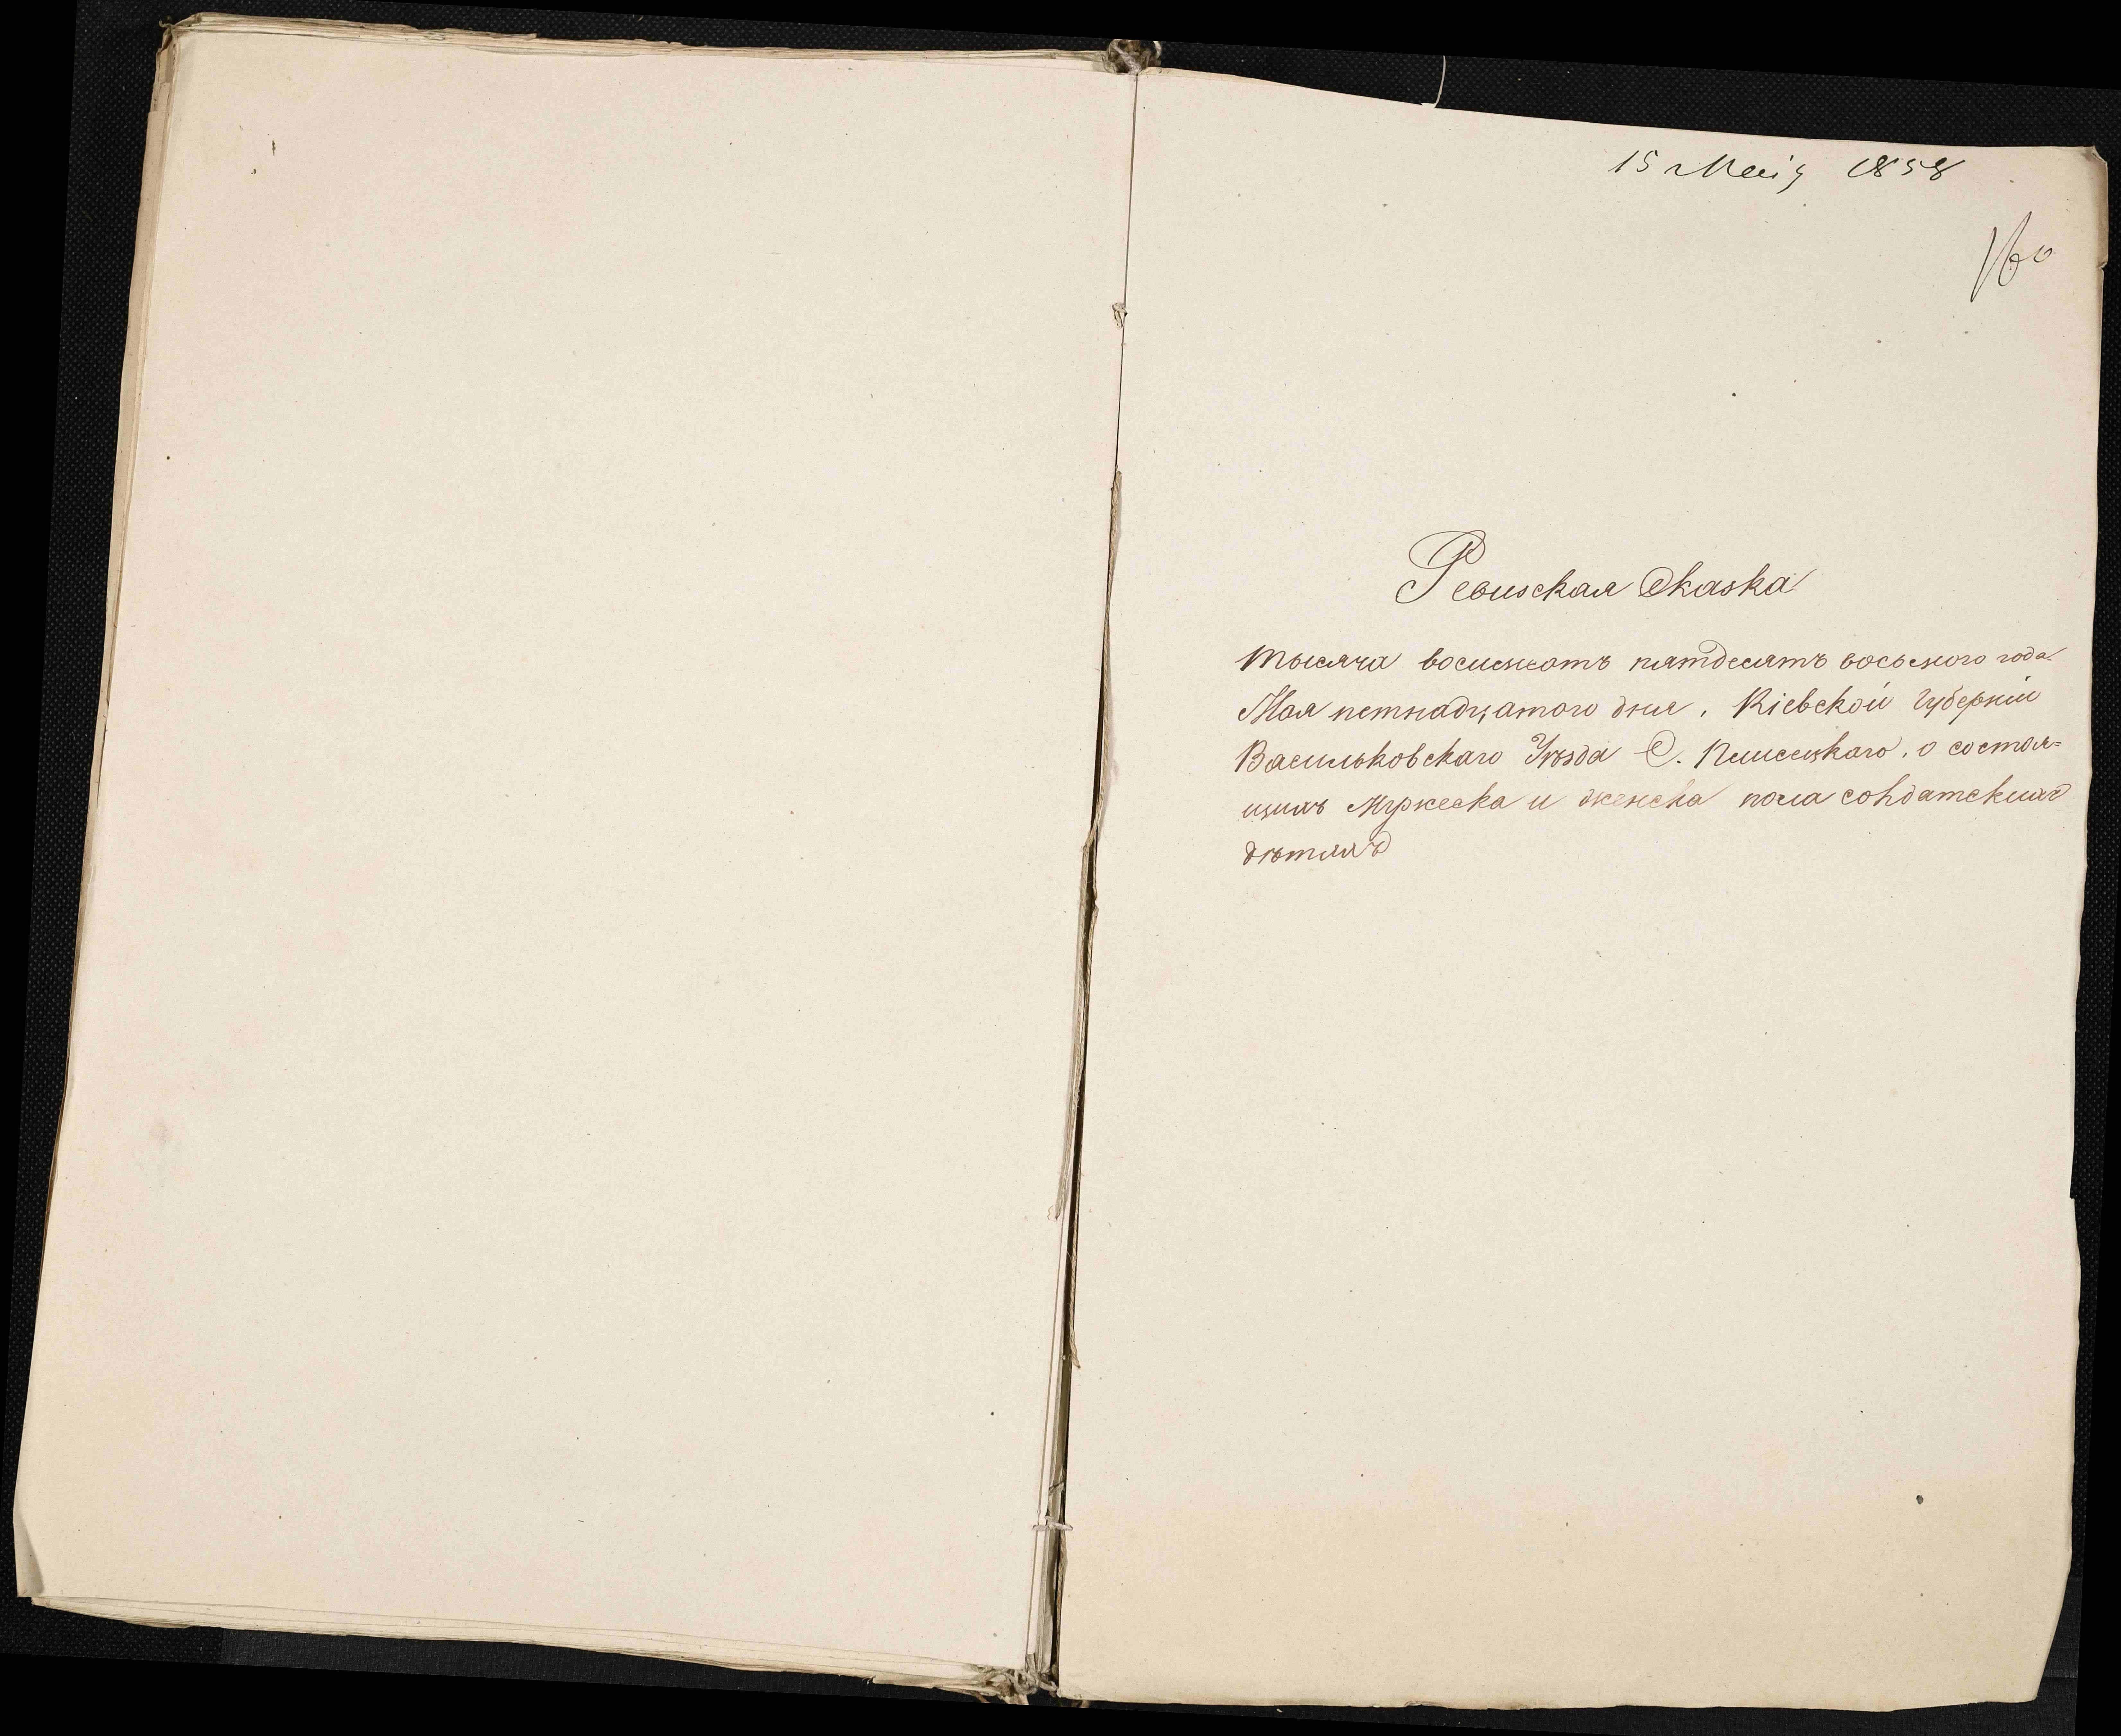 15 Маія 1858
160
Ревизская Сказка
тысяча восемсотъ пятдесятъ восьмого года
Мая петнадцатого дня, Кіевской Губерніи
Васильковскаго Уѣзда С. о состоя=
щихъ Мужеска и женска пола солдатскихъ
дѣтяхъ